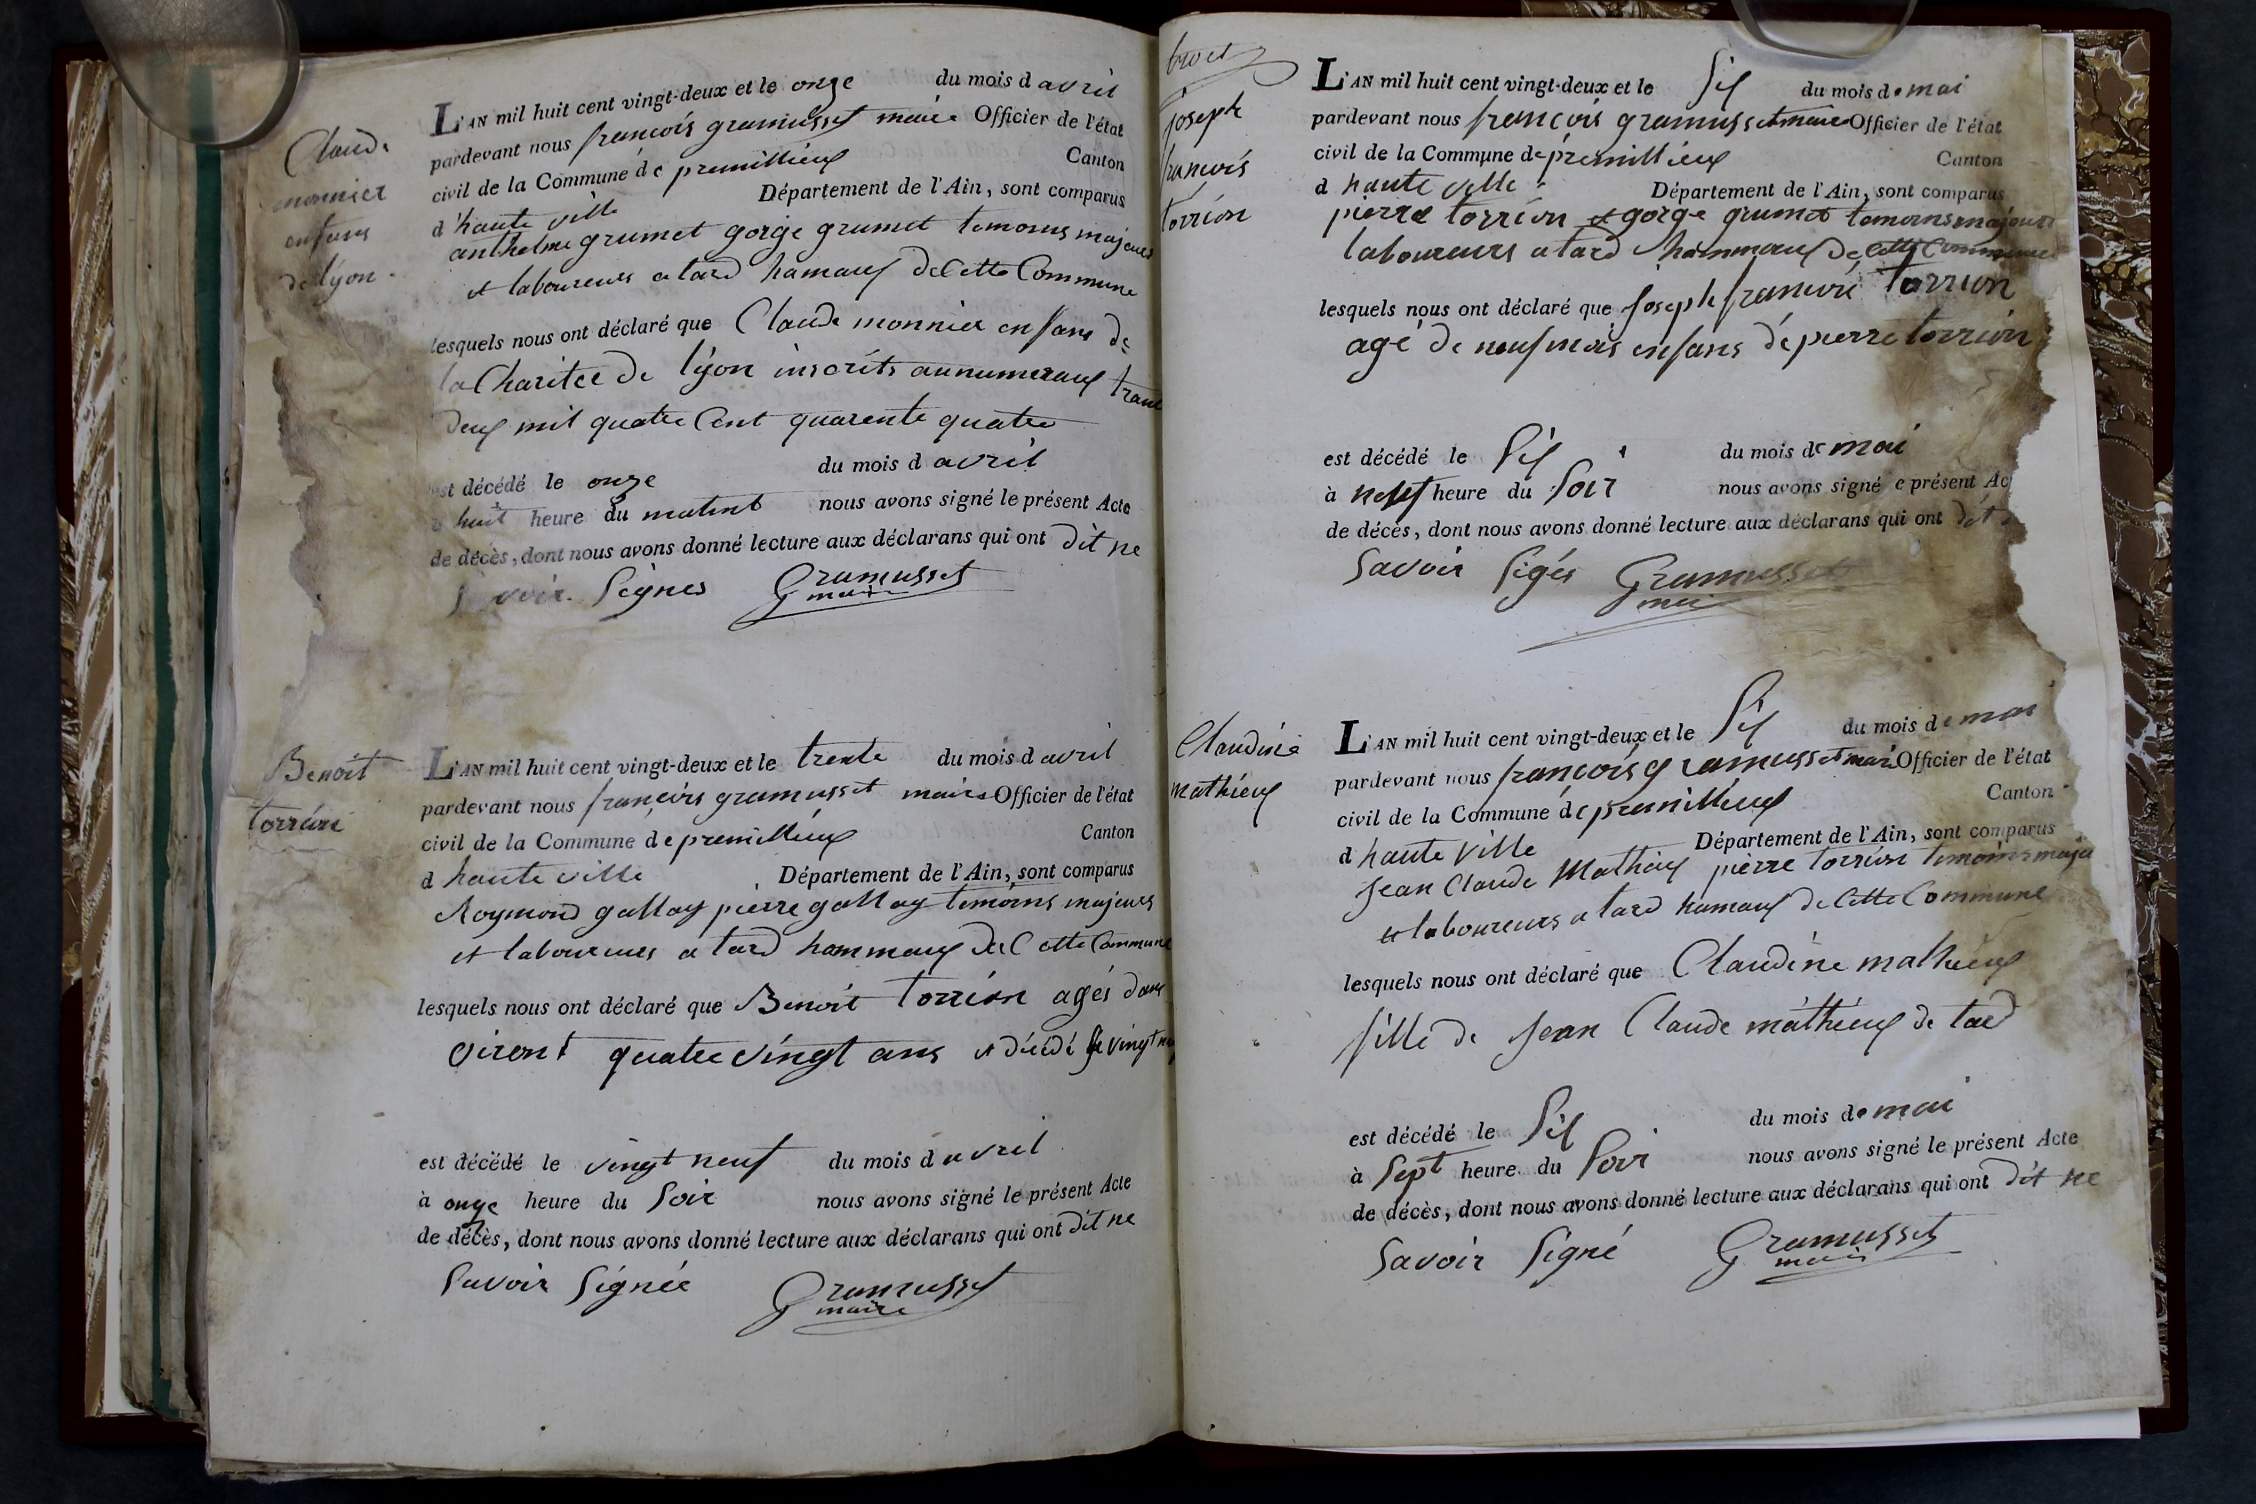 Claude
monnier
enfans
de lÿon
L'AN mil huit cent vingt-deux et le onze du mois d avril
pardevant nous françois gramusset maire Officier de l'état
civil de la Commune de premillieux Canton
d'haute ville Département de l'Ain, sont comparus
anthelme grumet gorge grumet temoins majeurs
et laboureurs a tard hamaux de Cette Commune
lesquels nous ont déclaré que Claude monnier enfans de
la Charitee de lÿon inscrits aunumeraux trante
deux mil quatre Cent quarente quatre
est décédé le onze du mois d avril
à huit heure du matint nous avons signé le présent Acte
de décès, dont nous avons donné lecture aux déclarans qui ont dit ne
savoir Signes Gramusset
maire
Benoit
torrion
L'AN mil huit cent vingt-deux et le trente du mois d avril
pardevant nous françois gramusset maire Officier de l'état
civil de la Commune de premillieux Canton
d haute ville Département de l'Ain, sont comparus
Roymond gallay pierre gallay temoins majeurs
et laboureurs a tard hommaux de Cette Commune
lesquels nous ont déclaré que Benoit torrion agés dans
viront quatre vingt ans et décédé le vingt
est décédé le vingt neuf du mois d avril
à onze heure du Soir nous avons signé le présent Acte
de décès, dont nous avons donné lecture aux déclarans qui ont dit ne
Savoir Signée Gramusset
maire
joseph
francois
torrion
L'AN mil huit cent vingt-deux et le Six du mois de mai
pardevant nous françois gramusset maire Officier de l'état
civil de la Commune de premillieux Canton
d haute ville Département de l'Ain, sont comparus
pierre torrion et gorge grumet temoins majeurs
laboureurs a tard hammaux de Cette Commune
lesquels nous ont déclaré que joseph francois torrion
agé de neuf mois enfans dé pierre torrion
est décédé le Six du mois de mai
à neuf heure du Soir nous avons signé e présent Ac
de décès, dont nous avons donné lecture aux déclarans qui ont dit
Savoir Sigés Gramusset
Claudine
mathieux
L'AN mil huit cent vingt-deux et le Six du mois de mai
pardevant nous françois gramusset Officier de l'état
civil de la Commune de premillieux Canton
d haute ville Département de l'Ain, sont comparus
Jean Claude Mathieux pierre torrion temoins maju
et laboureurs a tard hamaux de Cette Commune
lesquels nous ont déclaré que Claudine mathieux
fille de Jean Claude mathieux de tard
est décédé le Six du mois de mai
à Sept heure du Soir nous avons signé le présent Acte
de décès, dont nous avons donné lecture aux déclarans qui ont dit ne
Savoir Signé Gramusset
maire